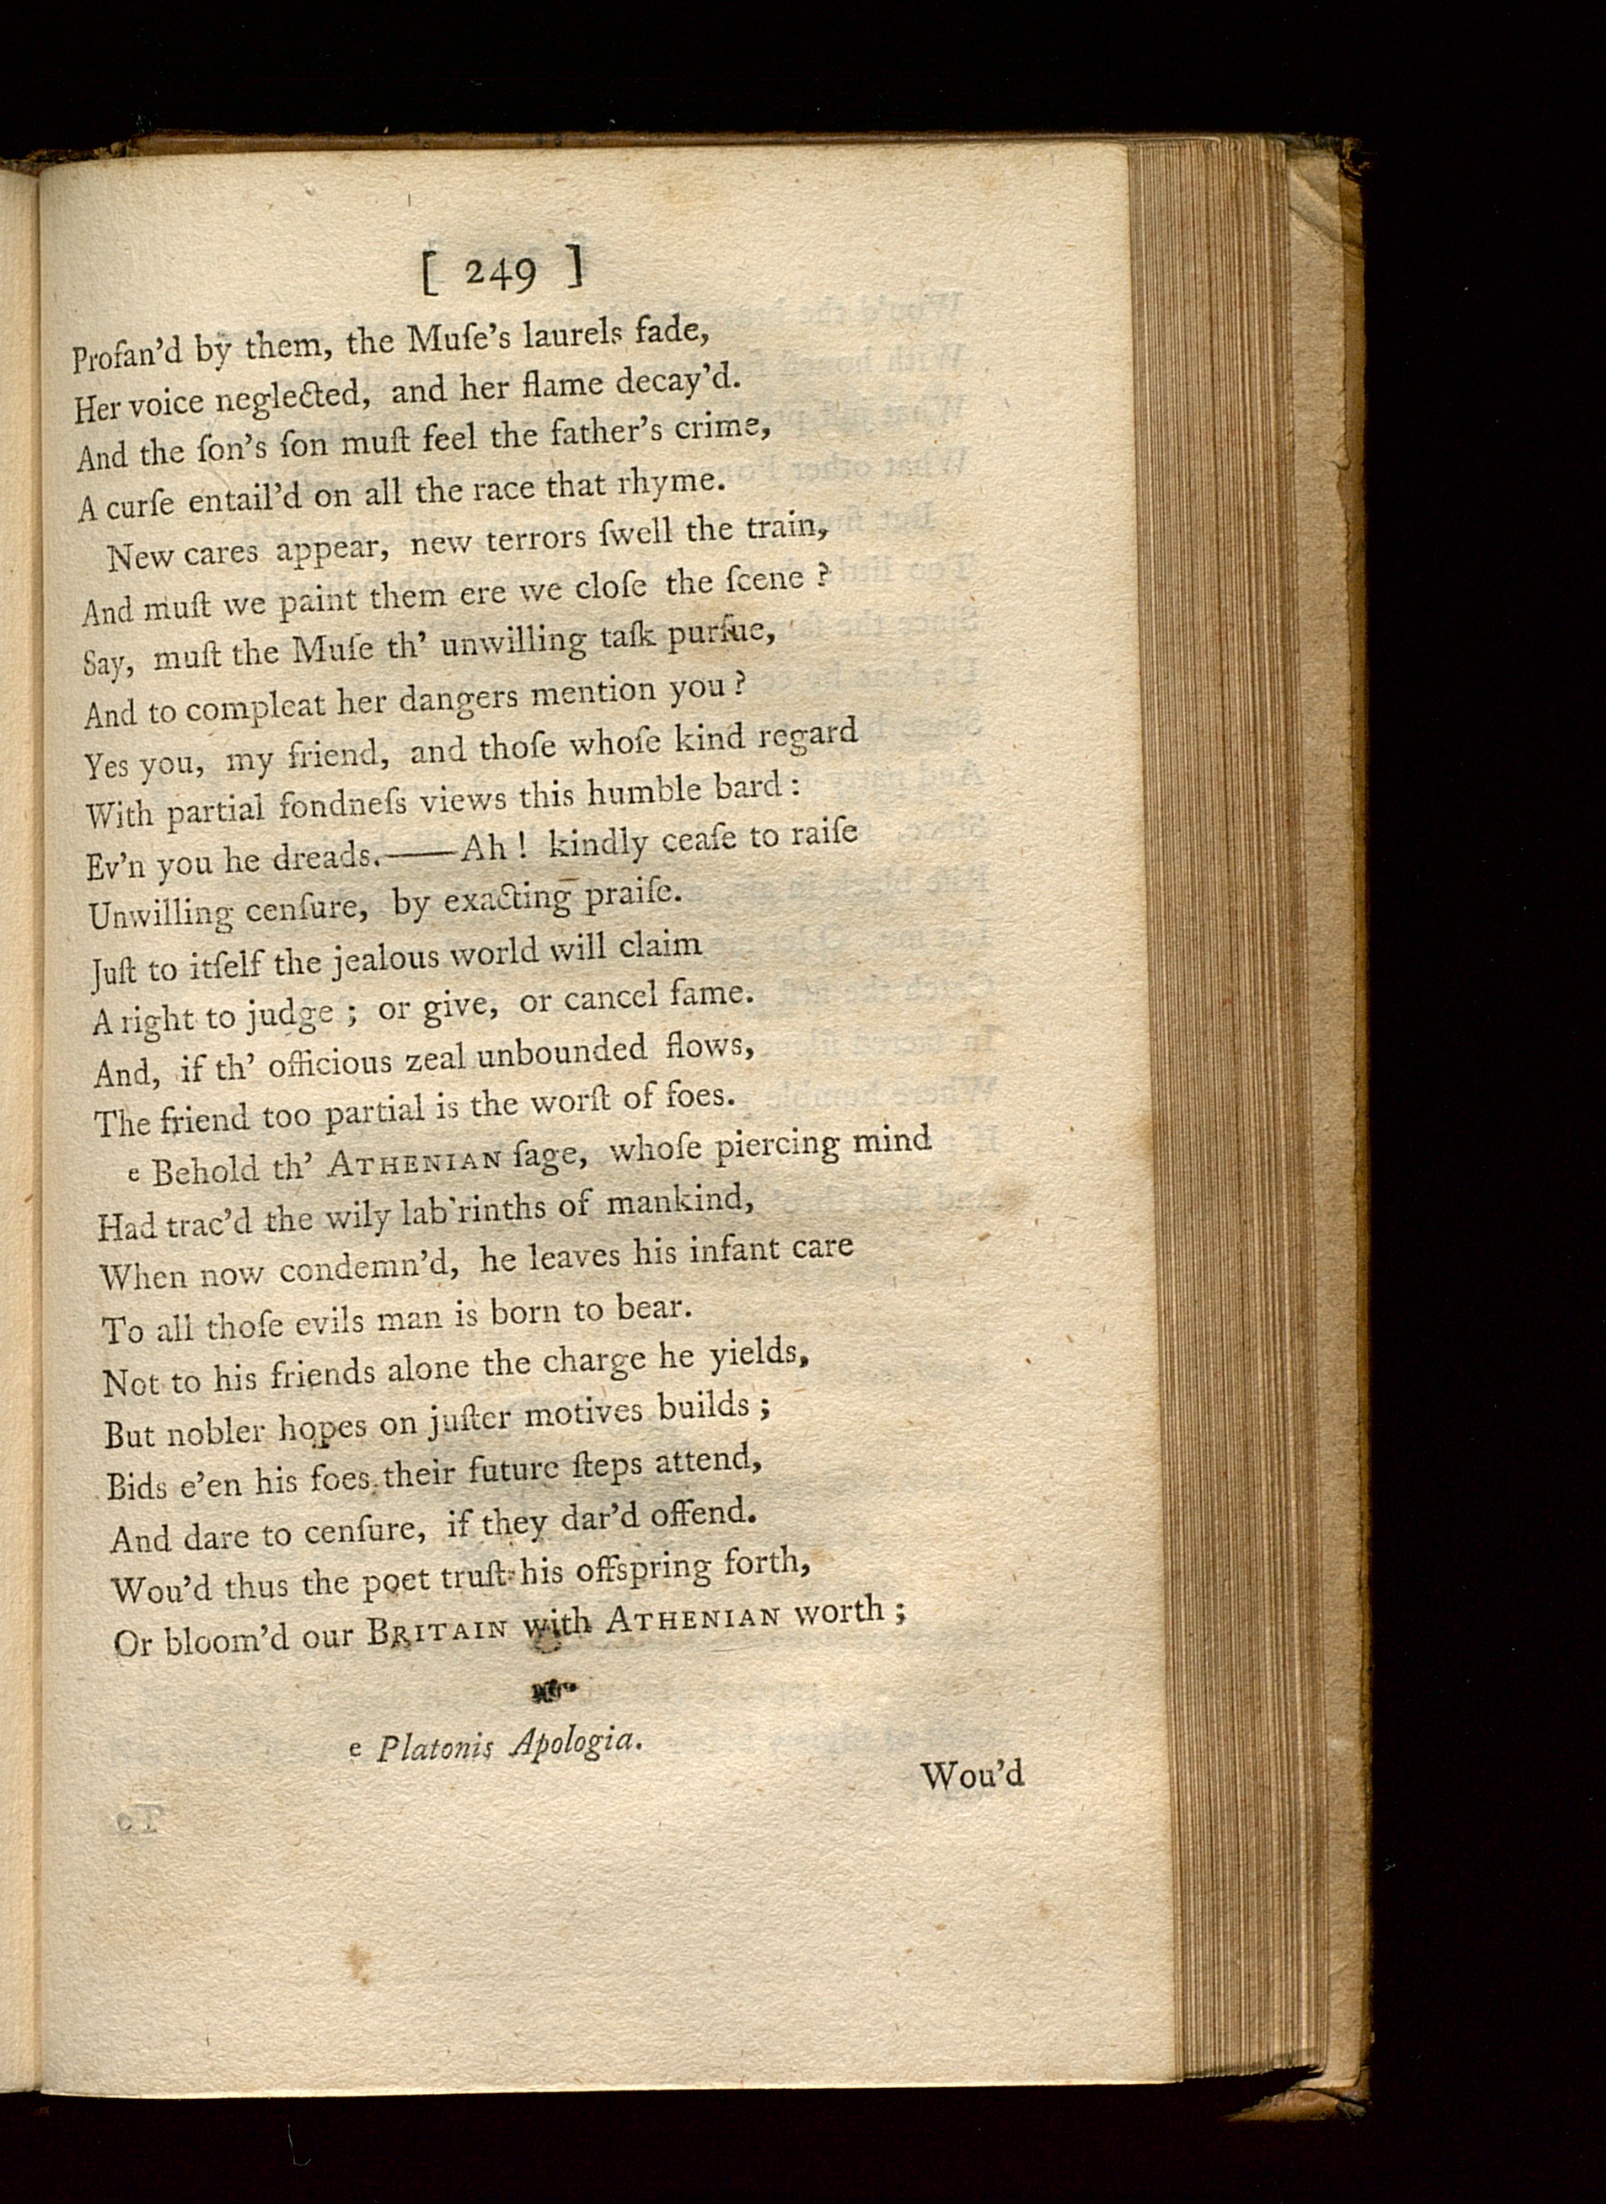 [ 249 ]
Profan'd by them, the Muſe's laurels fade,
Her voice neglected, and her flame decay'd.
And the ſon's ſon muſt feel the father's crime,
A curſe entail'd on all the race that rhyme.
New cares appear, new terrors ſwell the train,
And muſt we paint them ere we cloſe the ſcene ?
Say, muſt the Muſe th' unwilling taſk purſue,
And to compleat her dangers mention you ?
Yes you, my friend, and thoſe whoſe kind regard
With partial fondneſs views this humble bard :
Ev'n you he dreads.——Ah ! kindly ceaſe to raiſe
Unwilling cenſure, by exacting praiſe.
Juſt to itſelf the jealous world will claim
A right to judge ; or give, or cancel fame.
And, if th' officious zeal unbounded flows,
The friend too partial is the worſt of foes.
e Behold th' ATHENIAN ſage, whoſe piercing mind
Had trac'd the wily lab'rinths of mankind,
When now condemn'd, he leaves his infant care
To all thoſe evils man is born to bear.
Not to his friends alone the charge he yields,
But nobler hopes on juſter motives builds ;
Bids e'en his foes their future ſteps attend,
And dare to cenſure, if they dar'd offend.
Wou'd thus the poet truſt his offspring forth,
Or bloom'd our BRITAIN with ATHENIAN worth ;
e Platonis Apologia.
Wou'd